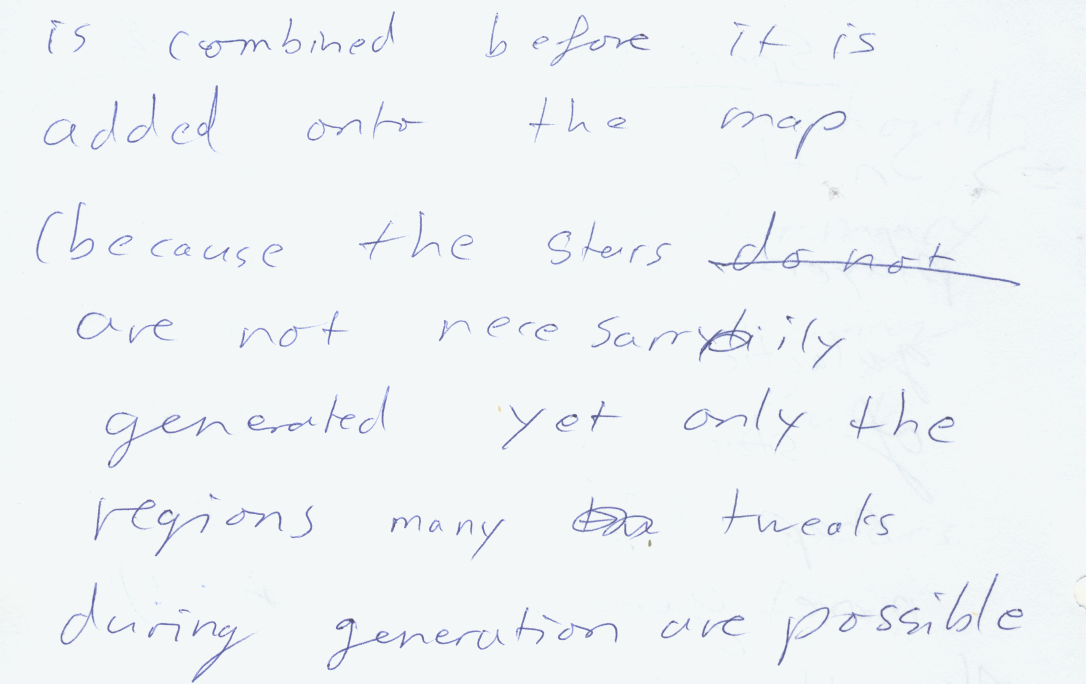 is combined before it is
added onto the map
(because the stars do not
are not necesarryily
generated yet only the
regions many tweaks
during generation are possible